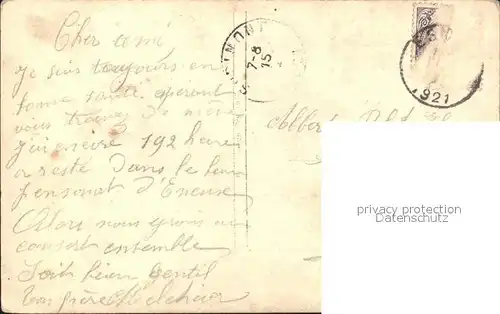 Cher ami
Je suis toujours en
bonne santé esperent
vous trouvez de même
j'ai encore 192 heure
a resté dans le beau
pensonat d'Eneuse
Alors nous yrons au
consert ensemble
Soit bien gentil
Ton frère Melchior
7-8
15
1921
Albert
privacy protection
Datenschutz